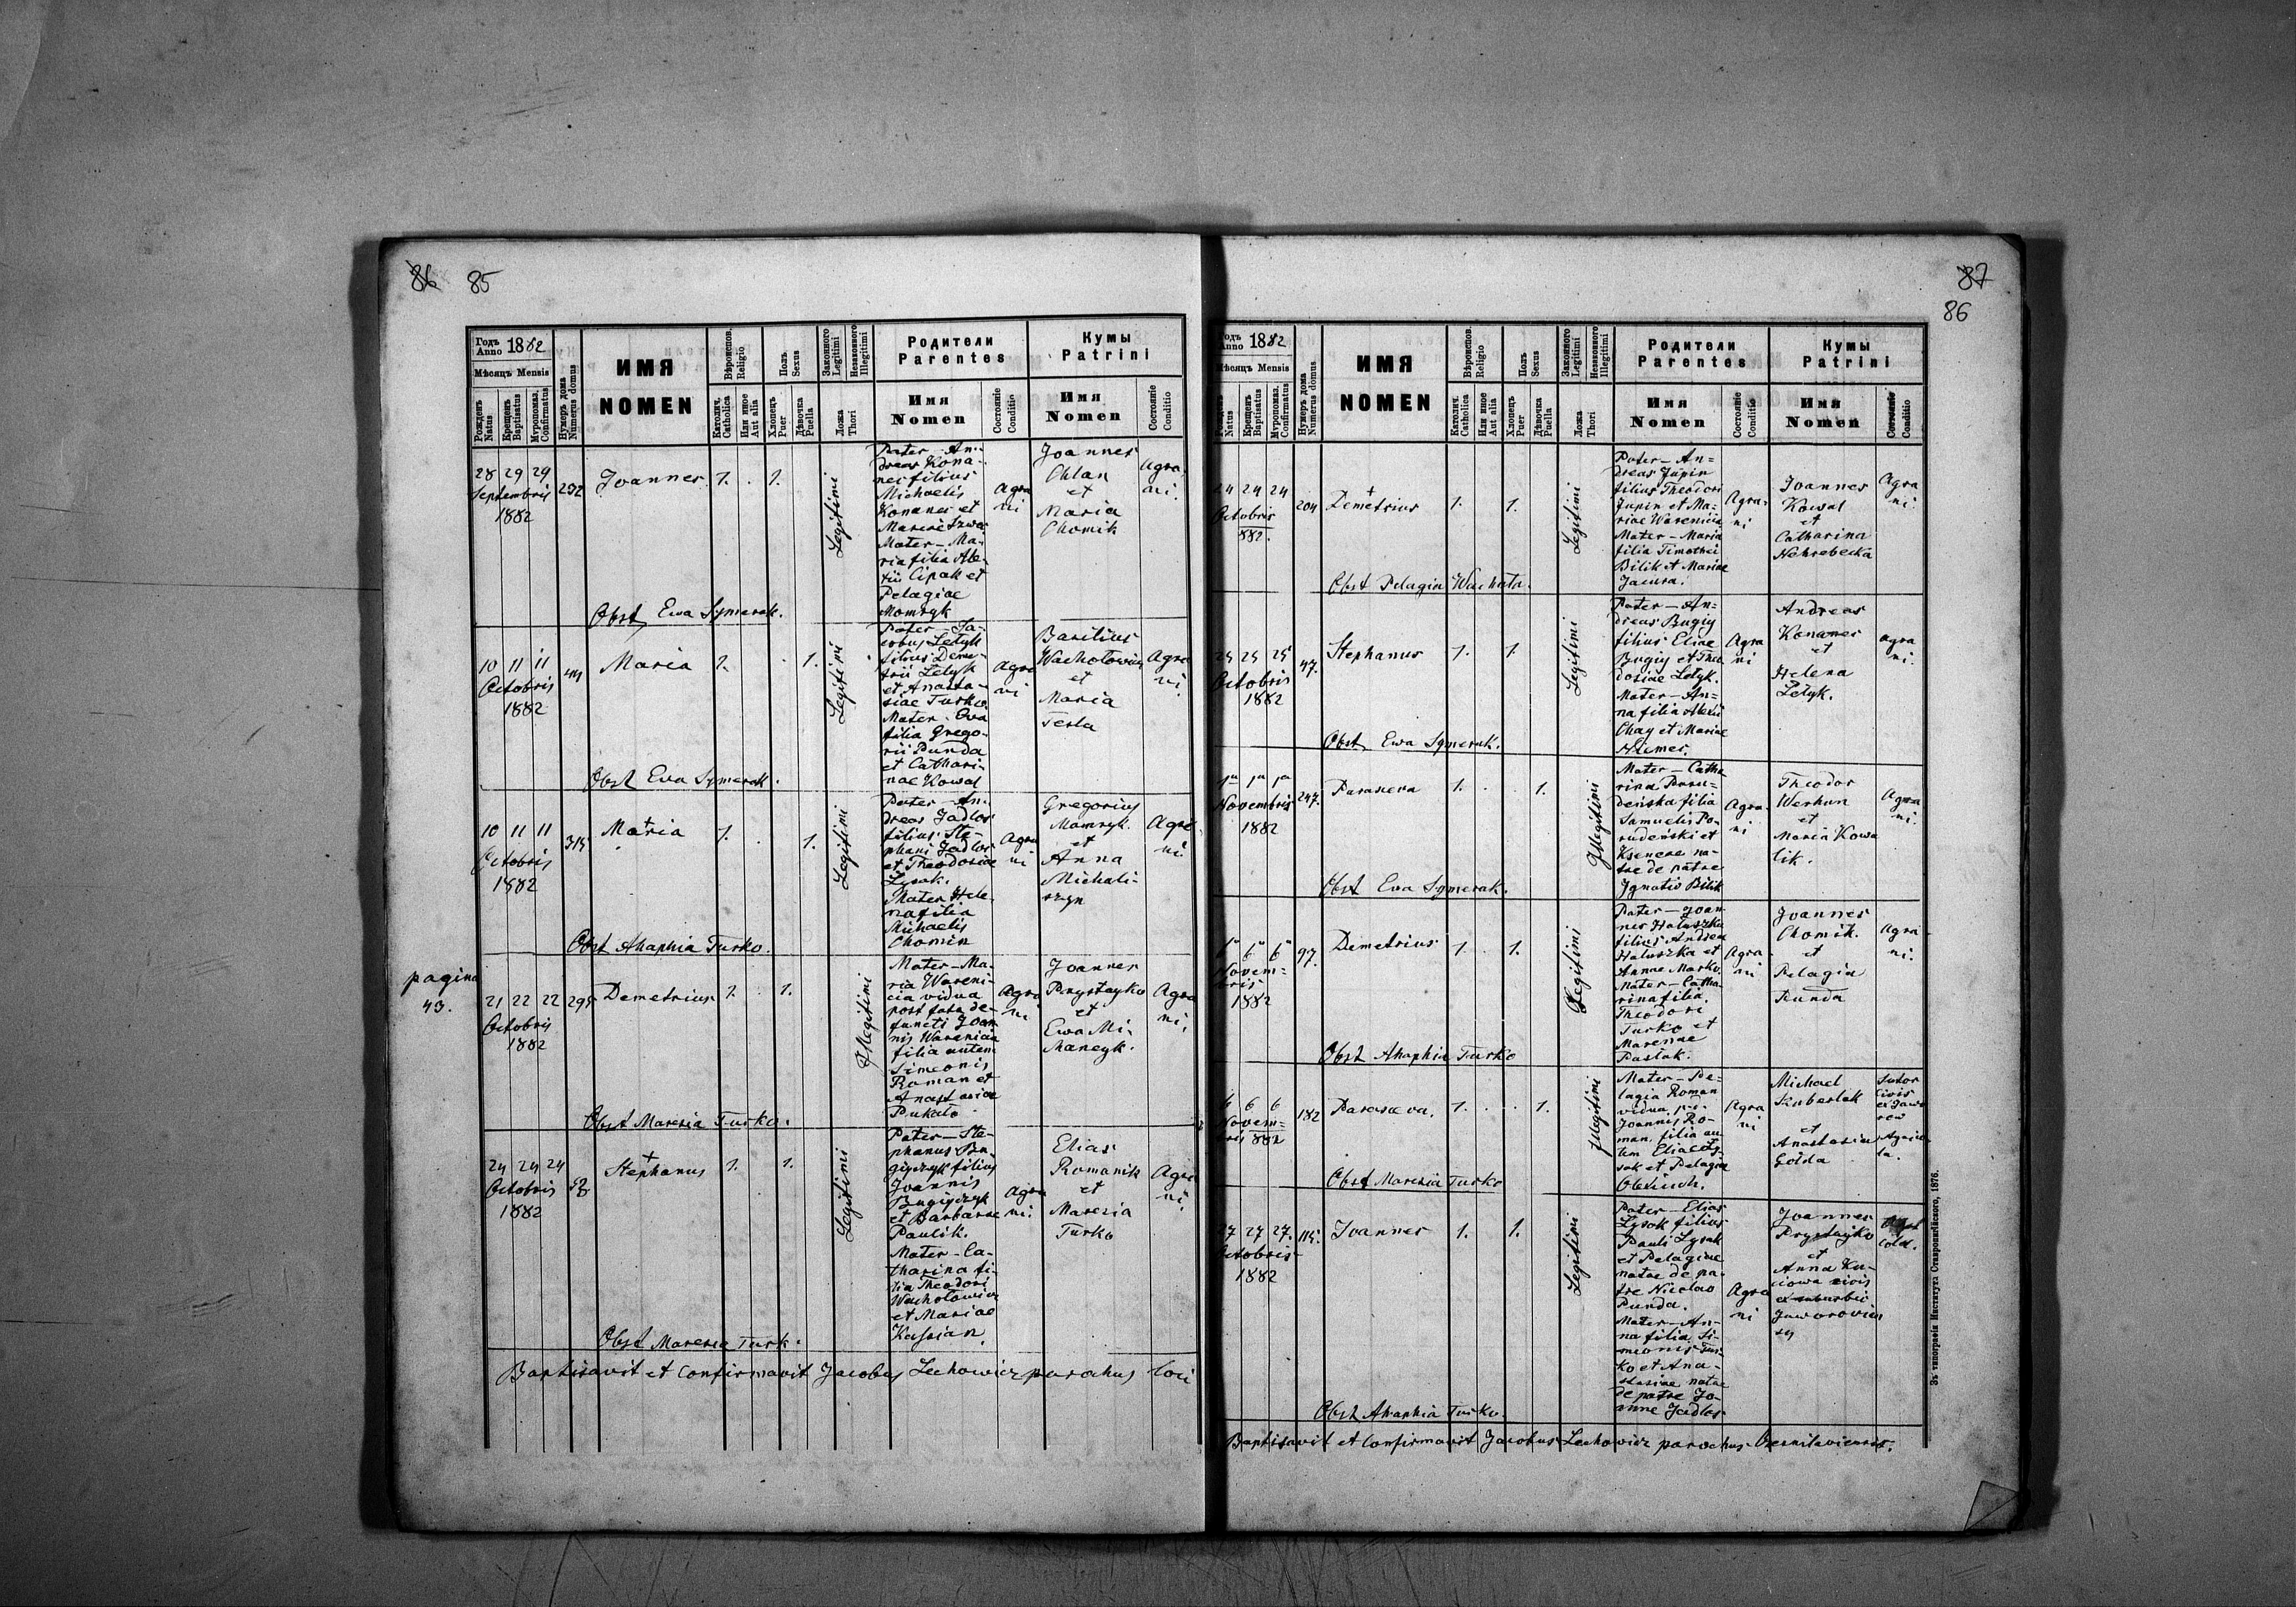 86 85
Годъ Anno 1882
Мѣсяцъ Mensis
Рожденъ Natus
Крещенъ Baptisatus
Мνропомаз. Confirmatus
Нумеръ дома Numerus domus
ИМЯ
NOMEN
Вѣроиспов. Religio
Католич. Catholica
Или иное Aut alia
Полъ Sexus
Хлопецъ Puer
Дѣвочка Puella
Законного Legitimi
Незаконного Illegitimi
Ложа Thori
Родители
Parentes
Имя
Nomen
Состояніе Conditio
Кумы
Patrini
Имя
Nomen
Состояніе Conditio
28 29 29
Septembris
1882
232
Joannes
1. . 1.
Legitimi
Pater – An-
dreas Kona-
nec filius
Michaelis
Konanec et
Mater – Ma-
ria filia Ale-
xii Cipak et
Pelagiae
Momryk
Agra
ni
Joannes
Chlan
et
Maria
Chomik
Agra
ni.
Obst Ewa Symerak.
10 11 11
Octobris
1882
Maria
1. . 1.
Legitimi
Pater – Ja-
cobus Letyk
filius Deme-
trii Letyk
et Anasta-
siae Turko.
Mater – Eva
filia Grego-
rii Punda
et Cathari-
nae Kowal
Agra
ni
Basilius
Wachotowicz
et
Maria
Tesla
Agra
ni.
Obst Ewa Symerak.
10 11 11
Octobris
1882
315
Maria
1. . 1.
Legitimi
Pater – An-
dreas Jadlos
filius Ste-
phani Jadlos
et Theodosiae
Lysak.
Mater Hele-
na filia
Michaelis
Chomin
Agra
ni
Gregorius
Momryk.
et
Anna
Michali-
szyn
Agra
ni.
Obst Ahaphia Turko.
pagina
43.
21 22 22
Octobris
1882
295
Demetrius
1. . 1.
Illegitimi
Mater – Ma-
ria Wareni-
cia vidua
post fata de-
functi Joan-
nis Warenicia
filia autem
Simeonis
Roman et
Anastasiae
Pukalo
Agra
ni
Joannes
Prystayko
et
Ewa Mi-
Agra
ni.
Obst Maresia Turko.
24 24 24
Octobris
1882
Stephanus
1. . 1.
Legitimi
Pater – Ste-
phanus Bu-
gijczyk filius
Joannis
Bugijczyk
et Barbarae
Paulik.
Mater – Ca-
tharina fi-
lia Theodori
Wachotowicz
et Mariae
Kassian.
Agra
ni.
Elias
Romanik
et
Maresia
Turko
Agra
ni.
Obst Maresia Turk.
Baptisavit et Confirmavit Jacobus Lechowicz parochus loci
87
86
Годъ Anno 1882
Мѣсяцъ Mensis
Natus
Крещенъ Baptisatus
Мνропомаз. Confirmatus
Нумеръ дома Numerus domus
ИМЯ
NOMEN
Вѣроиспов. Religio
Католич. Catholica
Или иное Aut alia
Полъ Sexus
Хлопецъ Puer
Дѣвочка Puella
Законного Legitimi
Незаконного Illegitimi
Ложа Thori
Родители
Parentes
Имя
Nomen
Состояніе Conditio
Кумы
Patrini
Имя
Nomen
Состояніе Conditio
24 24 24
Octobris
882.
204
Demetrius
1. 1.
Legitimi
Pater – An=
dreas Jupin
filius Theodori
Jupin et Ma-
riae Warenicia
Mater – Maria
filia Timothei
Bilik et Mariae
Jacura.
Agra-
ni
Joannes
Kowal
et
Catharina
Nehrebecka
Agra
ni.
Obst Pelagia Wachota.
25 25 25
Octobris
1882
47.
Stephanus
1. 1.
Legitimi
Pater – An=
dreas Bugiy
filius Eliae
Bugiy et Theo
dosiae Letyk.
Mater – An=
na filia Alexii
Chay et Mariae
Agra
ni
Andreas
Konanec
et
Helena
Letyk.
Agra
ni.
Obst Ewa Symerak.
1a 1a 1a
Novembris
1882
247.
Parascva
1. . . 1.
Illegitimi
Mater – Catha
rina Poru-
deńska filia
Samuelis Po-
rudeński et
Kseneae na-
tae de patre
Ignatio Bilik
Agra-
ni
Theodor
Werhun
et
Maria Kowa
lik.
Agra
ni.
Obst Ewa Symerak.
6 6 6
Novem=
bris
1882
97.
Demetrius
1. . 1.
Legitimi
Pater – Joan-
nes Haluszka
filius Andreae
Haluszka et
Annae Marko.
Mater – Catha-
rina filia
Theodori
Turko et
Marenae
Paslak.
Agra
ni
Joannes
Chomik.
et
Pelagia
Punda
Agra-
ni.
Obst Ahaphia Turko
6 6 6
Novem=
bris 882
182
Parasceva.
1. . . 1.
Illegitimi
Mater – Pe-
lagia Roman
vidua p.
Joannis Ro-
man, filia au-
tem Eliae Ly-
sak et Pelagiae
Agra
ni
Michael
et
Anastasia
Golda
Sutor
civis
ex Jawo
row
Agrico-
la.
Obst Maresia Turko
27 27 27.
Octobris
1882
115.
Joannes
1. 1.
Legitimi
Pater – Elias
Lysak filius
Pauli Lysak
et Pelagiae
natae de pa-
tre Nicolao
Punda.
Mater – An-
na filia Si-
meonis Tur-
ko et Ana-
stasiae natae
de patre Jo-
anne Jadlos
Agra
ni
Joannes
Prystayko
et
Anna Ku-
ciowa civis
ex suburbio
Jaworovien
sy
Agri
cola.
Obst Ahaphia Turko.
Baptisavit et Confirmavit Jacobus Lechowicz parochus
Зъ типографіи Института Ставропигійского, 1876.